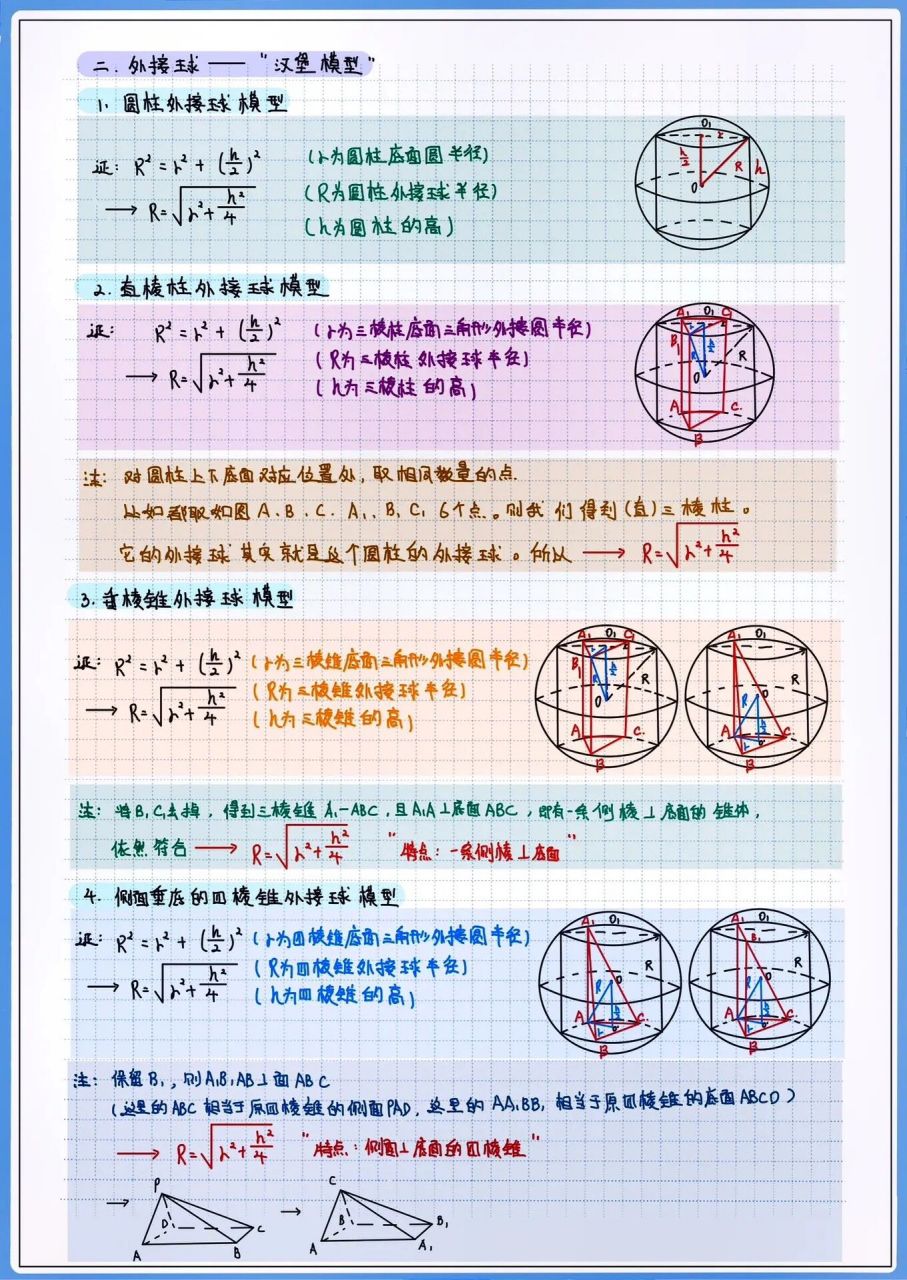 二. 外接球 —— "汉堡模型"
1. 圆柱外接球模型
证: R² = r² + (h/2)²
(r为圆柱底面圆半径)
→ R=√(r²+h²/4)
(R为圆柱外接球半径)
(h为圆柱的高)
O₁ r
h/2 R h
O
2. 直棱柱外接球模型
证: R² = r² + (h/2)²
(r为三棱柱底面三角形外接圆半径)
→ R=√(r²+h²/4)
(R为三棱柱外接球半径)
(h为三棱柱的高)
A₁ O₁ C₁
B₁ r
R h/2 R
O
A C
B
注: 对圆柱上下底面对应位置处, 取相同数量的点.
比如都取如图 A、B、C、A₁、B₁C₁ 6个点。则我们得到(直)三棱柱。
它的外接球其实就是这个圆柱的外接球。所以 → R=√(r²+h²/4)
3. 垂棱锥外接球模型
证: R² = r² + (h/2)²
(r为三棱锥底面三角形外接圆半径)
→ R=√(r²+h²/4)
(R为三棱锥外接球半径)
(h为三棱锥的高)
A₁ O₁ C₁
B₁ r
R h/2 R
O
A C
B
A₁ O₁
R
R O
h/2
A r C
B
注: 将B₁C₁去掉, 得到三棱锥 A₁-ABC, 且A₁A⊥底面ABC, 即有一条侧棱⊥底面的锥体,
依然符合 → R=√(r²+h²/4) "特点: 一条侧棱⊥底面"
4. 侧面垂底的四棱锥外接球模型
证: R² = r² + (h/2)²
(r为四棱锥底面三角形外接圆半径)
→ R=√(r²+h²/4)
(R为四棱锥外接球半径)
(h为四棱锥的高)
A₁ O₁
R
R O
h/2
A r C
B
A₁ O₁
B₁
R
R O
h/2
A r C
B
注: 保留B₁, 则A₁B₁AB⊥面ABC
(这里的ABC相当于原四棱锥的侧面PAD, 这里的 AA₁BB₁ 相当于原四棱锥的底面ABCD)
→ R=√(r²+h²/4) "特点: 侧面⊥底面的四棱锥"
→ P
D C
A B
→ C
B B₁
A A₁